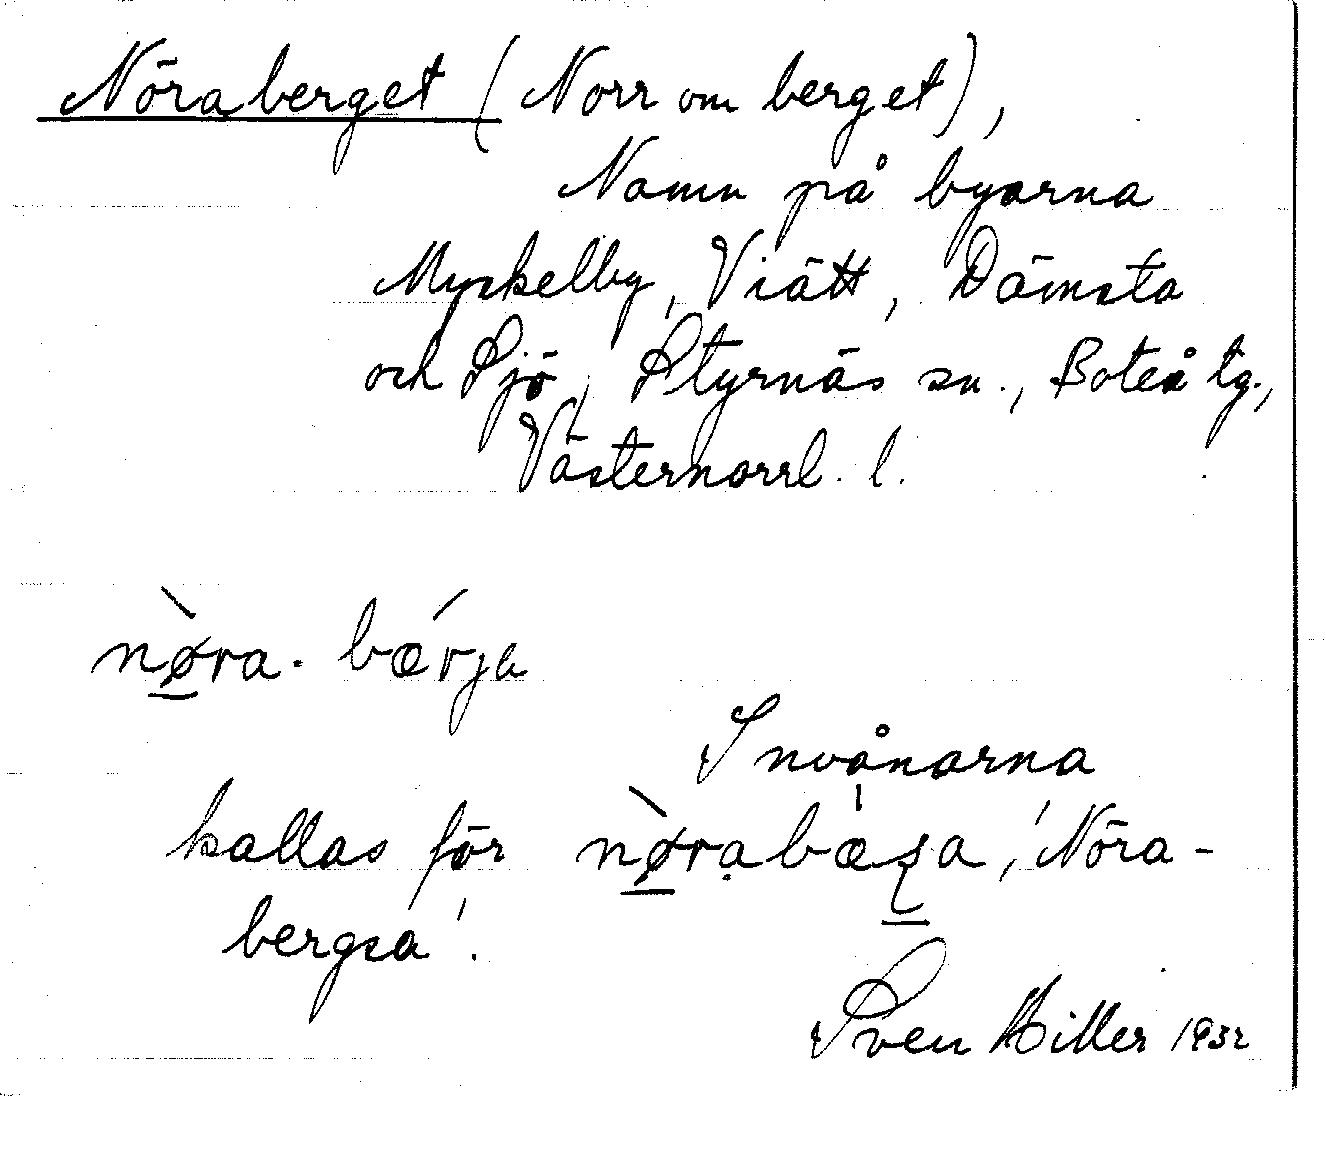 Nöraberget (Norr om berget),
Namn på byarna
Myckelby, Viätt, Dämsta
och Sjö, Styrnäs sn., Boteå tg.,
Västernorrl. l.
nø̀ra. bǽrja
Invånarna
kallas för nø̀rabæsa, 'Nöra-
bergsa'.
Sven Hiller 1932